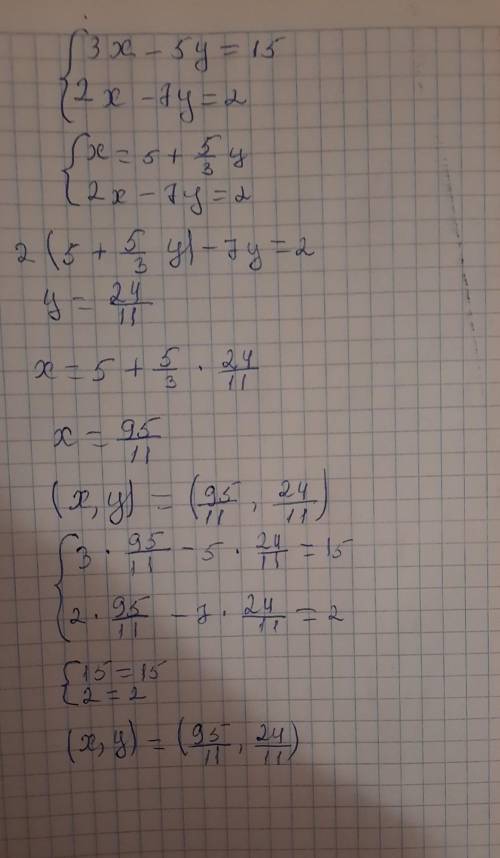 {3x - 5y = 15
2x - 7y = 2
{x = 5 + 5/3 y
2x - 7y = 2
2(5 + 5/3 y) - 7y = 2
y = 24/11
x = 5 + 5/3 · 24/11
x = 95/11
(x, y) = (95/11, 24/11)
{3 · 95/11 - 5 · 24/11 = 15
2 · 95/11 - 7 · 24/11 = 2
{15 = 15
2 = 2
(x, y) = (95/11, 24/11)